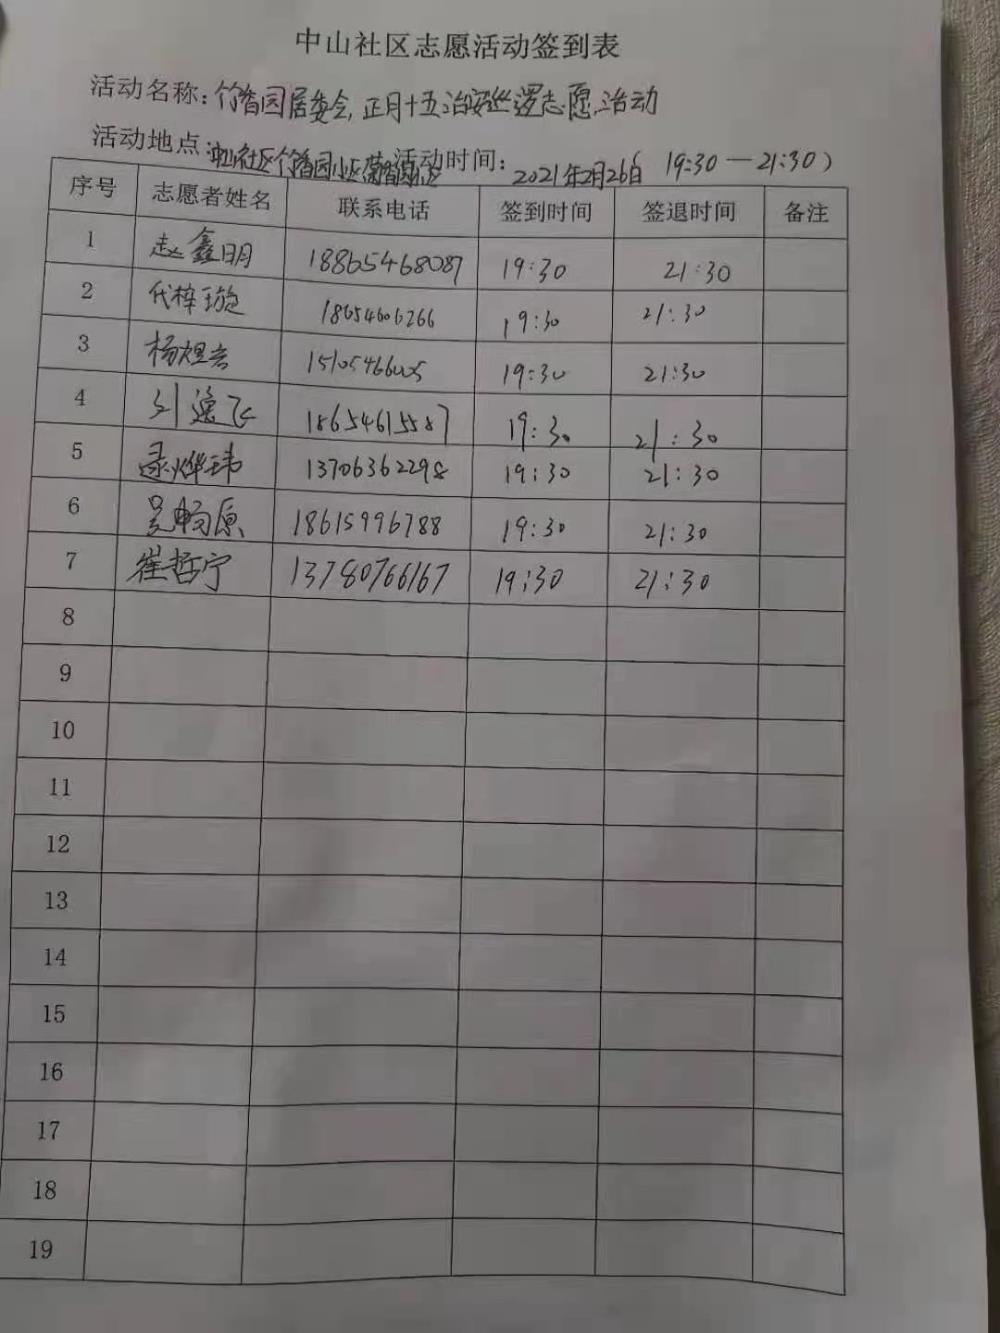 中山社区志愿活动签到表
活动名称：竹香园居委会，正月十五治安巡逻志愿活动
活动地点：中山社区竹香园小区 活动时间：2021年2月26日（19:30—21:30）
序号 志愿者姓名 联系电话 签到时间 签退时间 备注
1 赵鑫明 18865468087 19:30 21:30
2 代梓璇 18654606266 19:30 21:30
3 杨煜 19:30 21:30
4 刘逸飞 18654615587 19:30 21:30
5 烨玮 13706362298 19:30 21:30
6 吴畅原 18615996788 19:30 21:30
7 崔哲宁 13780766167 19:30 21:30
8
9
10
11
12
13
14
15
16
17
18
19